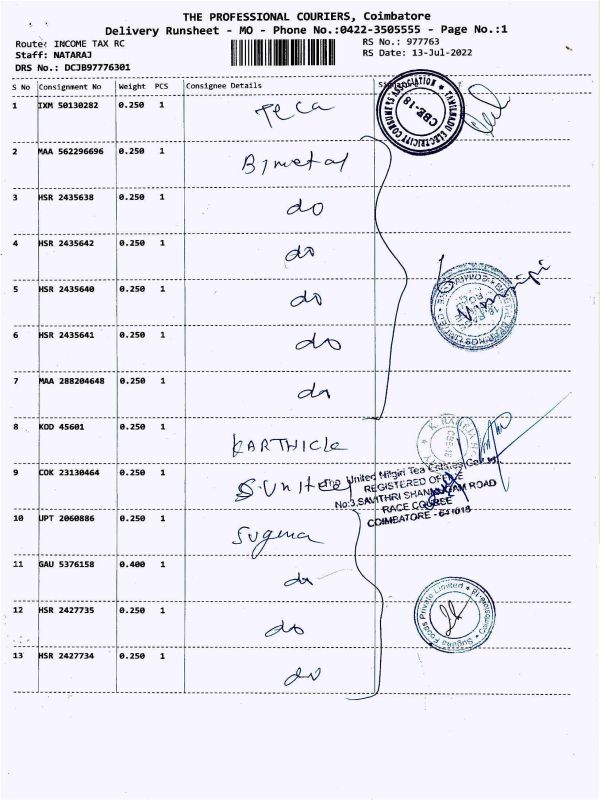 THE PROFESSIONAL COURIERS, Coimbatore
Delivery Runsheet - MO - Phone No.:0422-3505555 - Page No.:1
Route: INCOME TAX RC
RS No.: 977763
Staff: NATARAJ
RS Date: 13-Jul-2022
DRS No.: DCJB97776301
S No Consignment No Weight PCS Consignee Details
1 IXM 50130282 0.250 1 Teca
TAMILNADU ELECTRICITY CONSUMERS ASSOCIATION
CBE-18
2 MAA 562296696 0.250 1 Bimetal
3 HSR 2435638 0.250 1 do
4 HSR 2435642 0.250 1 do
5 HSR 2435640 0.250 1 do
BIMETAL BEARINGS LIMITED
6 HSR 2435641 0.250 1 do
7 MAA 288204648 0.250 1 do
8 KOD 45601 0.250 1 KARTHICK
9 COK 23130464 0.250 1 S.United
The United Nilgiri Tea Estates Co.
REGISTERED OFFICE
No:3,SAVITHRI SHANMUGAM ROAD
RACE COURSE
COIMBATORE - 641018
10 UPT 2060886 0.250 1 Suguna
11 GAU 5376158 0.400 1 do
12 HSR 2427735 0.250 1 do
Suguna Foods Private Limited
13 HSR 2427734 0.250 1 do